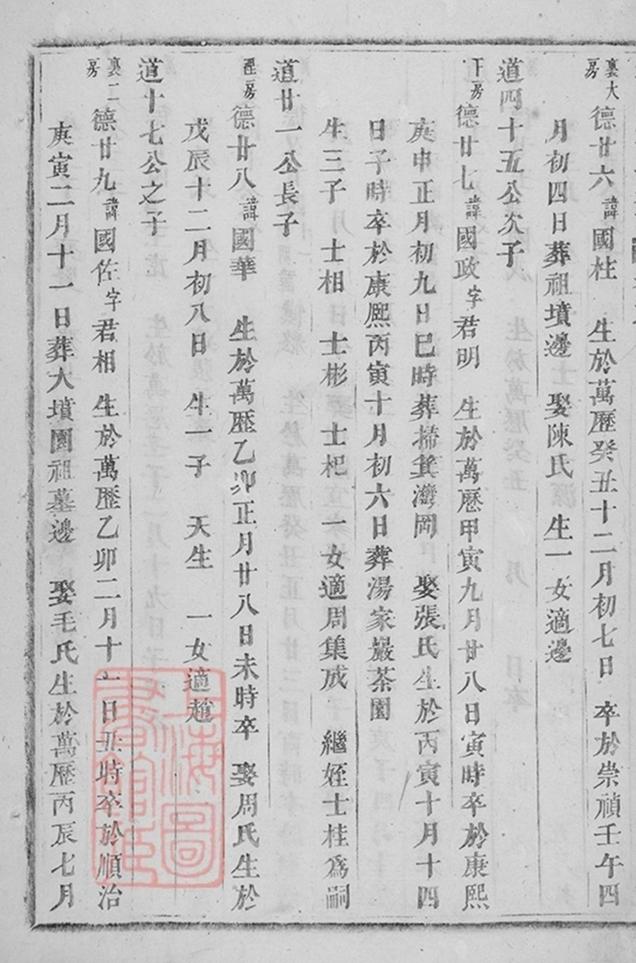 裏大房 德廿六 諱 國柱 生於萬曆癸丑十二月初七日 卒於崇禎壬午四
月初四日葬祖墳邊 娶陳氏 生一女適邊
道四十五公次子
下房 德廿七 諱 國政 字 君明 生於萬曆甲寅九月廿八日寅時卒於康熙
庚申正月初九日巳時葬掃箕灣岡 娶張氏生於丙寅十月十四
日子時卒於康熙丙寅十月初六日葬湯家巖茶園
生三子 士相 士彬 士杞 一女適周集成 繼姪士桂為嗣
道廿一公長子
德廿八 諱 國華 生於萬曆乙卯正月廿八日未時卒 娶周氏生於
戊辰十二月初八日 生一子 天生 一女適趙
道十七公之子
裏二房 德廿九 諱 國佐 字 君相 生於萬曆乙卯二月十一日丑時卒於順治
庚寅二月十一日葬大墳園祖墓邊 娶毛氏生於萬曆丙辰七月
上海圖